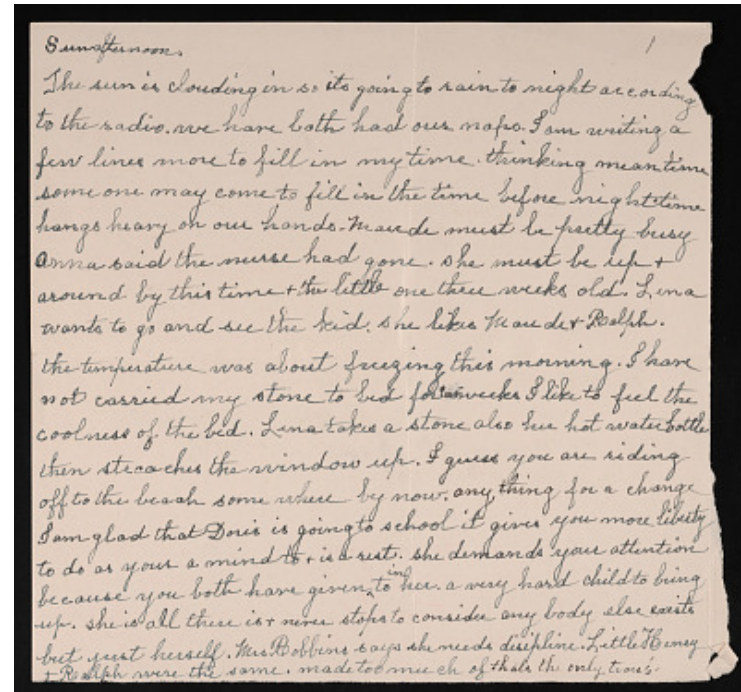 Sun afternoon.
1
The sun is clouding in so its going to rain to night according
to the radio. we have both had our naps. I am writing a
few lines more to fill in my time. thinking meantime
some one may come to fill in the time before night. time
hangs heavy on our hands. Maude must be pretty busy
Anna said the nurse had gone. she must be up +
around by this time + the little one three weeks old. Lena
wants to go and see the kid. she likes Maude + Ralph.
the temperature was about freezing this morning. I have
not carried my stone to bed for weeks I like to feel the
coolness of the bed. Lena takes a stone also her hot water bottle
then streaches the window up. I guess you are riding
off to the beach some where by now. any thing for a change
I am glad that Doris is going to school it gives you more liberty
to do as your a mind to + is a rest. she demands your attention
because you both have given in to her. a very hard child to bring
up. she is all there is + never stops to consider any body else exists
but just herself. Mrs Robbins says she needs disipline. Little Henry
+ Ralph were the same. made too much of thats the only trou